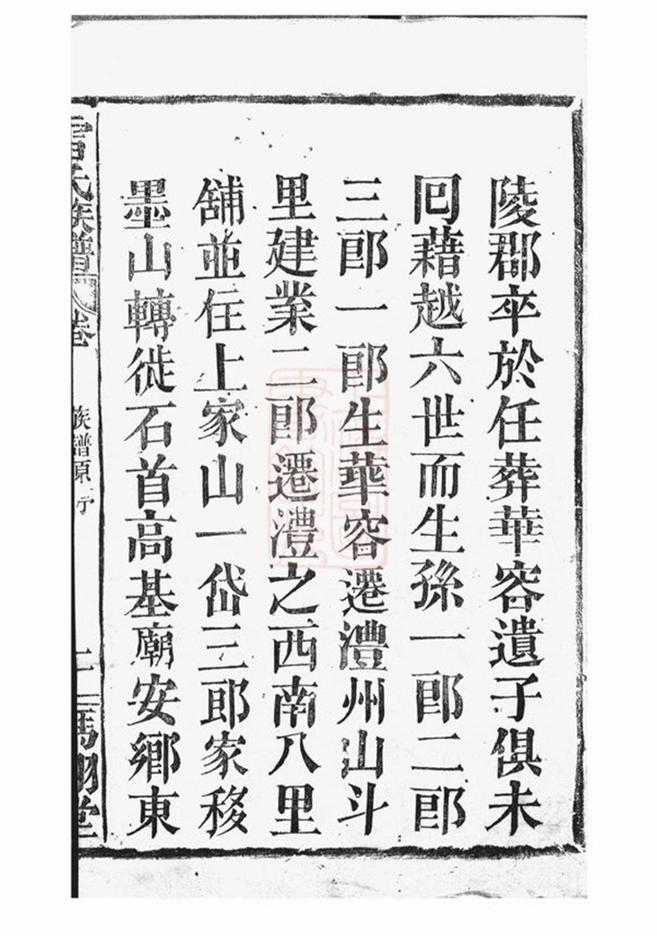 陵郡卒於任葬華容遺子俱未
囘藉越六世而生孫一郎二郎
三郎一郎生華容遷澧州山斗
里建業二郎遷澧之西南八里
舖並住上家山一岱三郎家移
墨山轉徙石首高基廟安鄉東
氏族譜 卷
族譜原序